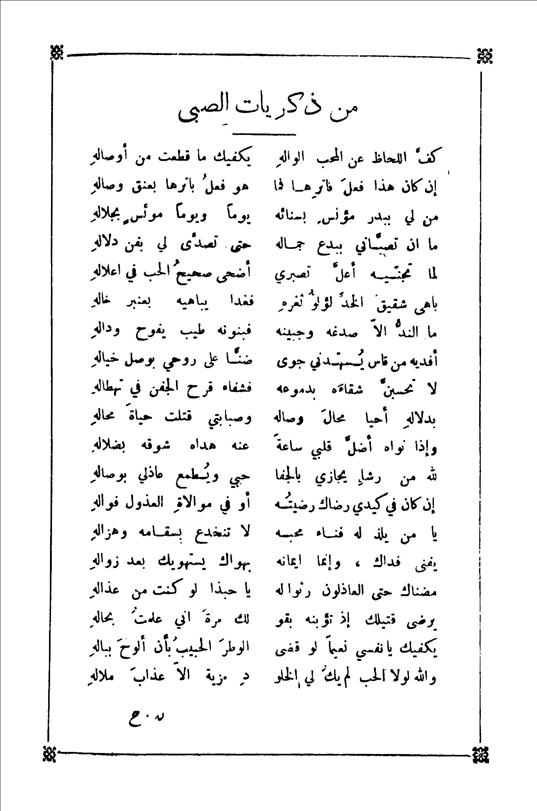 من ذكريات الصبى
كفَّ اللحاظ عن المحب الوالهِ يكفيك ما قطعت من أوصالهِ
إن كان هذا فعلَ فاترها فما هو فعلُ باترها بعنق وصالهِ
من لي ببدر مؤنسٍ بسنائه يوماً ويوماً موئسٍ بجلالهِ
ما ان تصبَّاني ببدع جماله حتى تصدَّى لي بفن دلالهِ
لما تجنّيه أعلَّ تصبري أضحى صحيحُ الحب في اعلالهِ
باهى شقيقَ الخدِّ لؤلؤُ ثغرهِ فغدا يباهيه بعنبر خالهِ
ما الندُّ الاّ صدغه وجبينه فبنونه طيب يفوح ودالهِ
أفديه من قاس يُسهّدني جوى ضنًّا على روحي بوصل خيالهِ
لا تحسبنَّ شقاءَه بدموعه فشفاء قرح الجفن في تهطالهِ
بدلالهِ أحيا محالَ وصاله وصبابتي قتلت حياةَ محالهِ
وإذا نواه أضلَّ قلبي ساعةً عنه هداه شوقه بضلالهِ
لله من رشاءٍ يجازي بالجفا حبي ويُطمع عاذلي بوصالهِ
إن كان في كيدي رضاك رضيتُه أو في موالاةِ العذول فوالهِ
يا من يلذ له فناء محبه لا تنخدع بسقامه وهزالهِ
يفنى فداك ، وإنما ايمانه بهواك يستهويك بعد زوالهِ
مضناك حتى العاذلون رثوا له يا حبذا لو كنت من عذالهِ
يرضى قتيلك إذ تؤبنه بقو لك مرةً اني علمتُ بحالهِ
يكفيك يانفسي نعيماً لو قضى الوطرَ الحبيبُ بأن ألوحَ ببالهِ
والله لولا الحب لم يكُ لي الخلو د مزية الاّ عذابَ ملالهِ
ن . ح